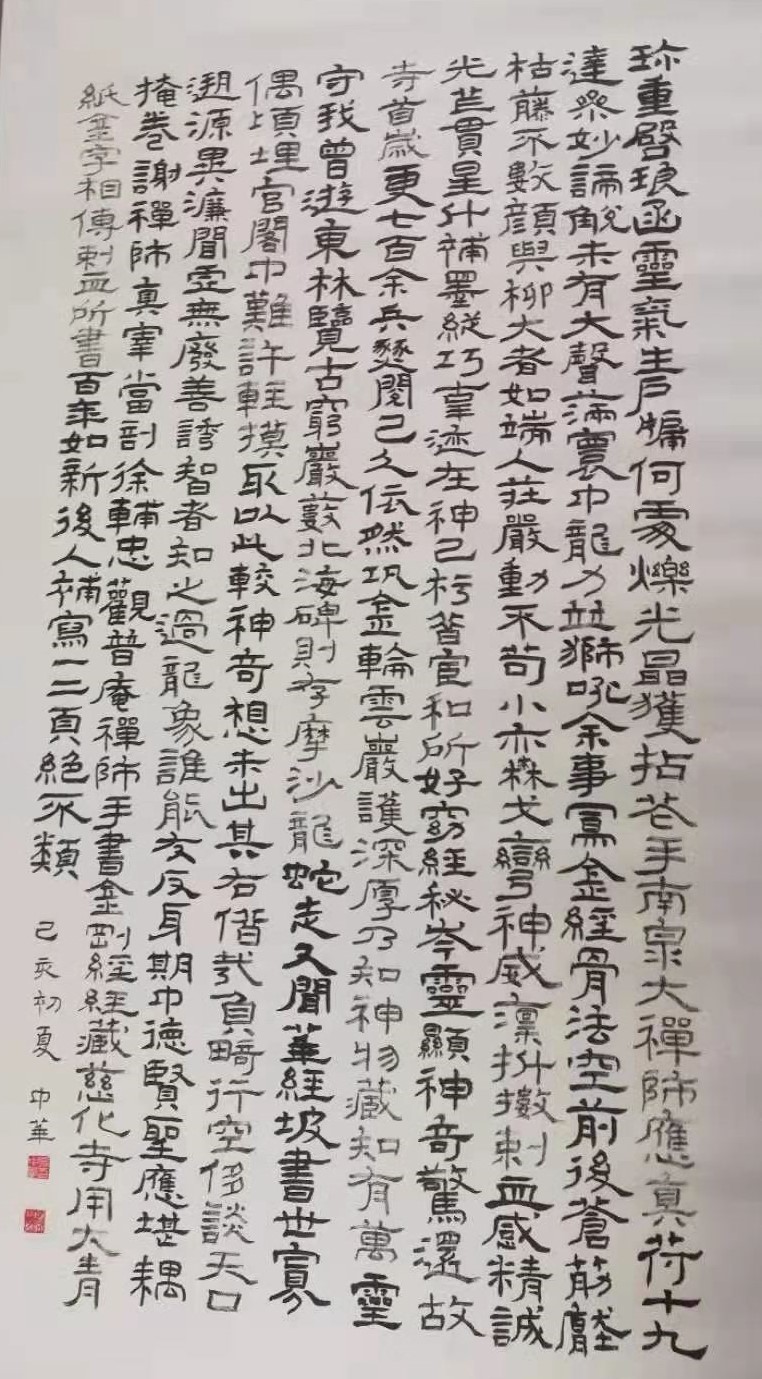 珎重啓琅函靈氣生戶牖何處爍光晶獲拈花手南泉大禪師應真符十九
達參妙諦觧未有大聲滿寰中龍力並獅吼余事寫金經骨法空前後蒼勁
枯藤不數顏與柳大者如端人莊嚴動不苟小亦森戈彎神威凜抖擻刺血感精誠
光芒貫星斗補墨縱巧掌迹在神已朽昔宣和所好窮經秘岑靈顯神奇驚還故
寺首歲更七百余兵燹閱已久依然巩金輪雲巖護深厚乃知神物藏知有萬靈
守我曾遊東林覽古窮巖藪北海碑則存摩沙龍蛇走又聞華經坡書世寡
偶項埋官閣中難許輕摸取以此較神奇想未出其右偕哉負畸行空侈談天口
遡源異濂聞虛無廢善誘智者知之過龍象誰能友反身期中德賢聖應堪耦
掩卷謝禪師真宰當剖徐輔忠觀普庵禪師手書金剛經經藏慈化寺用太青
紙金字相傳刺血所書百年如新後人補寫一二頁絕不類
己亥初夏 中華